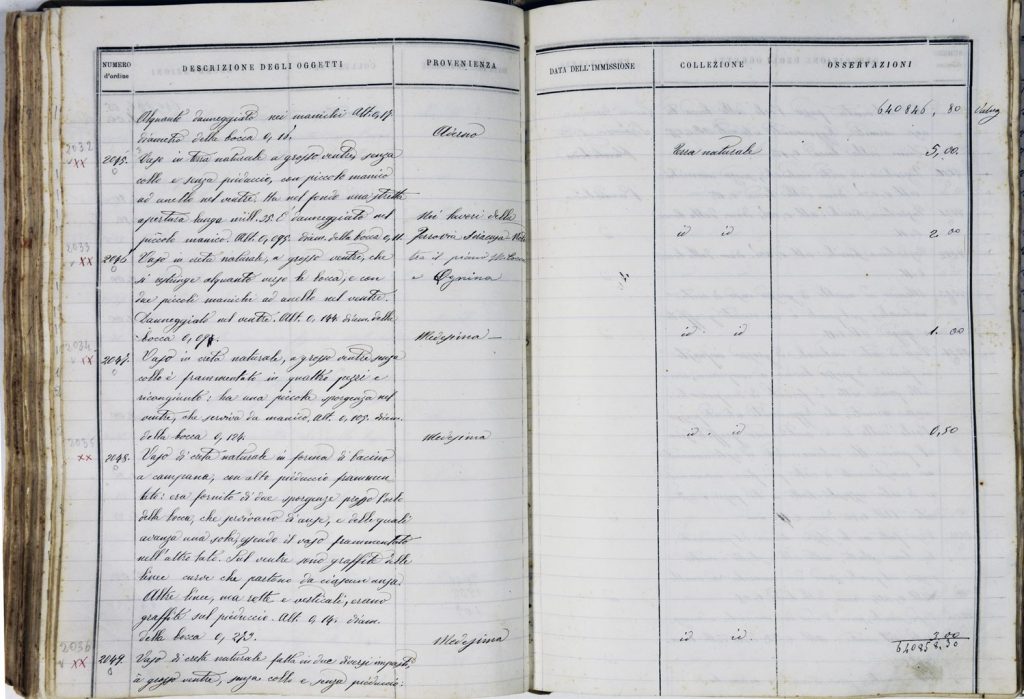 NUMERO d'ordine
DESCRIZIONE DEGLI OGGETTI
PROVENIENZA
DATA DELL'IMMISSIONE
COLLEZIONE
OSSERVAZIONI
640846, 80
Alquanto danneggiato nei manichi Alt. 0,17
diametro della bocca 0,12
2032
xx
2045. Vaso in terra naturale a grosso ventre, senza
collo e senza pieduccio, con piccolo manico
ad anello nel ventre. Ha nel fondo una stretta
apertura lunga mill. 25. È danneggiato nel
piccolo manico. Alt. 0,095. diam. della bocca 0,11.
Terra naturale
5,00.
Nei lavori della
Ferrovia Siracusa
id id
2 00
2033
xx
2046. Vaso in creta naturale, a grosso ventre, che
si restringe alquanto verso la bocca, e con
due piccoli manichi ad anello nel ventre.
Danneggiato nel ventre. Alt. 0,144. diam. della
bocca
e Ognina
Medesima
id id
1. 00
2034
xx
2047. Vaso in creta naturale, a grosso ventre senza
collo è frammentato in quattro pezzi e
ricongiunto: ha una piccola sporgenza nel
ventre, che serviva da manico. Alt. 0,105. diam.
della bocca 0,124.
Medesima
id. id
0,50
2035
xx
2048. Vaso di creta naturale in forma di bacino
a campana, con alto pieduccio frammen
tato: era fornito di due sporgenze presso l'orlo
della bocca, che servivano di anse, e delle quali
avanza una sola, essendo il vaso frammentato
nell'altro lato. Sul ventre sono graffite delle
linee curve che partono da ciascun'ansa.
Altre linee, ma rette e verticali, erano
graffite sul pieduccio. Alt. 0,14. diam.
della bocca 0,272.
Medesima
id id.
2,00
640858,30
2036
xx
2049. Vaso di creta naturale fatta in due diversi impasti
a grosso ventre, senza collo e senza pieduccio: